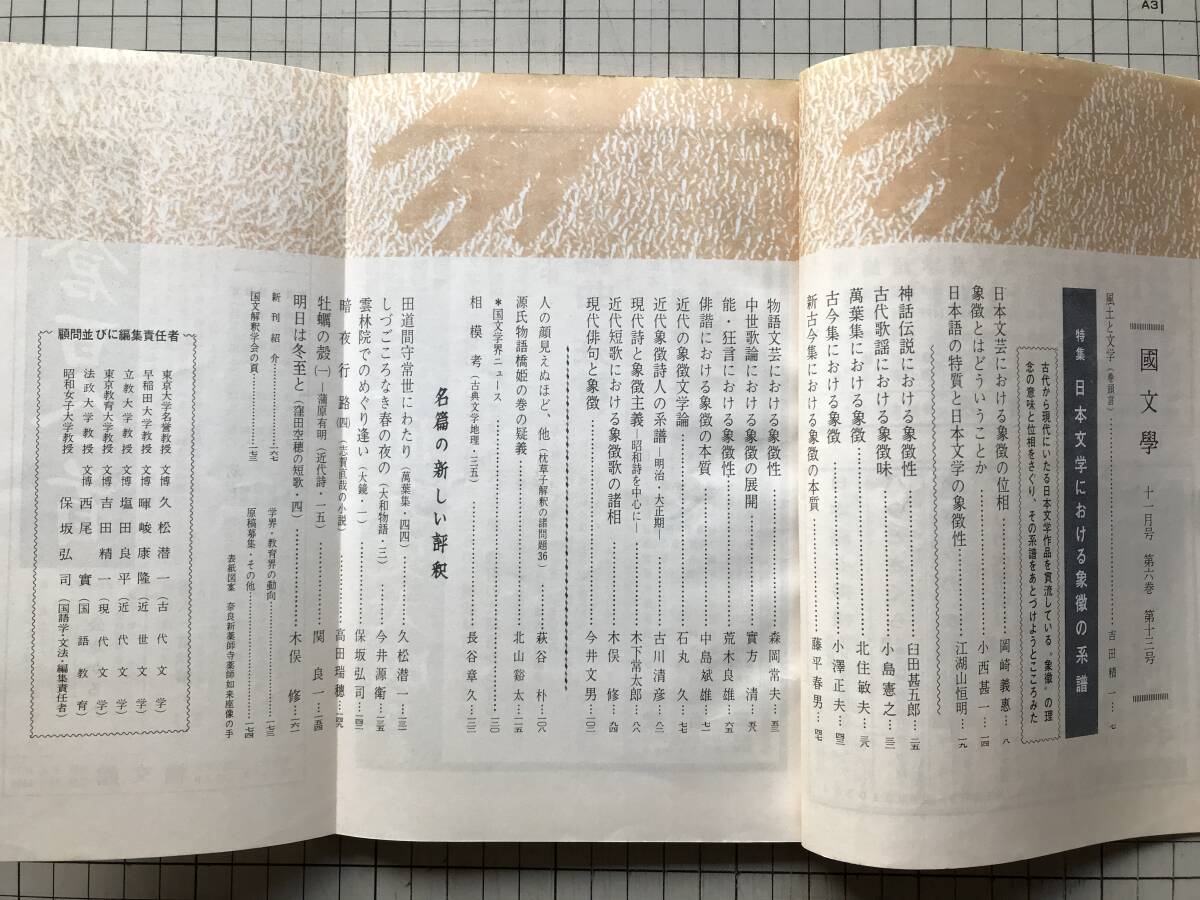 A3
國文學 十一月号 第六巻 第十三号
風土と文学（巻頭言）……吉田精一…七
特集 日本文学における象徴の系譜
古代から現代にいたる日本文学作品を貫流している“象徴”の理
念の意味と位相をさぐり、その系譜をあとづけようとこころみた
日本文芸における象徴の位相……岡崎義惠…八
象徴とはどういうことか……小西甚一…一四
日本語の特質と日本文学の象徴性……江湖山恒明…一九
神話伝説における象徴性……臼田甚五郎…二五
古代歌謡における象徴味……小島憲之…三二
萬葉集における象徴……北住敏夫…三八
古今集における象徴……小澤正夫…四三
新古今集における象徴の本質……藤平春男…四七
物語文芸における象徴性……森岡常夫…五三
中世歌論における象徴の展開……實方清…五九
能・狂言における象徴性……荒木良雄…六五
俳諧における象徴の本質……中島斌雄…七一
近代の象徴文学論……石丸久…七七
近代象徴詩人の系譜―明治・大正期―……古川清彦…八二
現代詩と象徴主義―昭和詩を中心に―……木下常太郎…八八
近代短歌における象徴歌の諸相……木俣修…九四
現代俳句と象徴……今井文男…一〇三
人の顔見えぬほど、他（枕草子解釈の諸問題36）……萩谷朴…一〇八
源氏物語橋姫の巻の疑義……北山谿太…一一五
＊国文学界ニュース……一二〇
相模考（古典文学地理・三五）……長谷章久…一二三
名篇の新しい評釈
田道間守常世にわたり（萬葉集・四四）……久松潜一…一三一
しづごころなき春の夜の（大和物語・三）……今井源衛…一三五
雲林院でのめぐり逢い（大鏡・一）……保坂弘司…一四二
暗夜行路（四）（志賀直哉の小説）……高田瑞穂…一四九
牡蠣の殻（一）―蒲原有明（近代詩・一五）……関良一…一五四
明日は冬至と（窪田空穂の短歌・四）……木俣修…一六一
新刊紹介……一六七
学界・教育界の動向……一七三
国文解釈学会の頁……一七三
原稿募集・その他……一七四
表紙図案 奈良新薬師寺薬師如来座像の手
顧問並びに編集責任者
東京大学名誉教授 文博 久松潜一（古代文学）
早稲田大学教授 文博 暉峻康隆（近世文学）
立教大学教授 文博 塩田良平（近代文学）
東京教育大学教授 文博 吉田精一（現代文学）
法政大学教授 文博 西尾實（国語教育）
昭和女子大学教授 保坂弘司（国語学・文法 編集責任者）